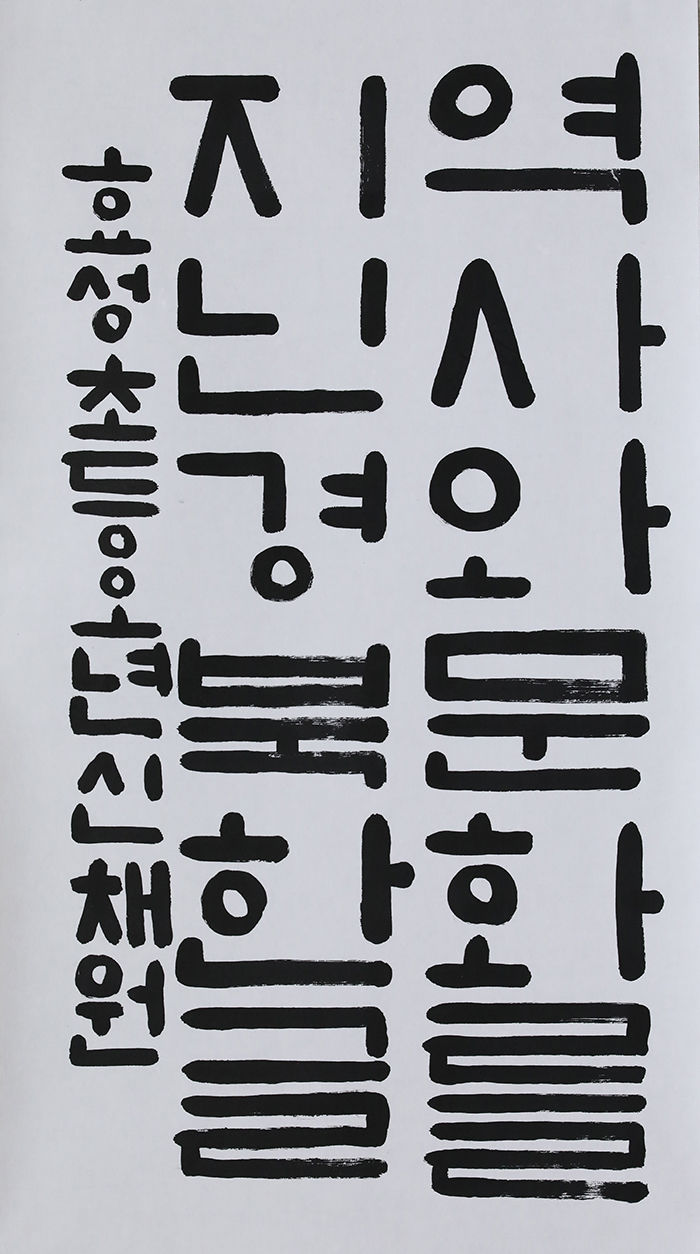 역사와문화를
지닌경북한글
효성초등오년신채원